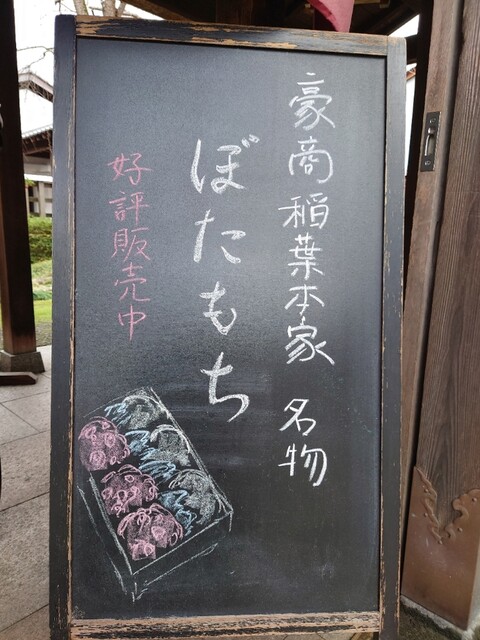 豪商稲葉本家 名物
ぼたもち
好評販売中